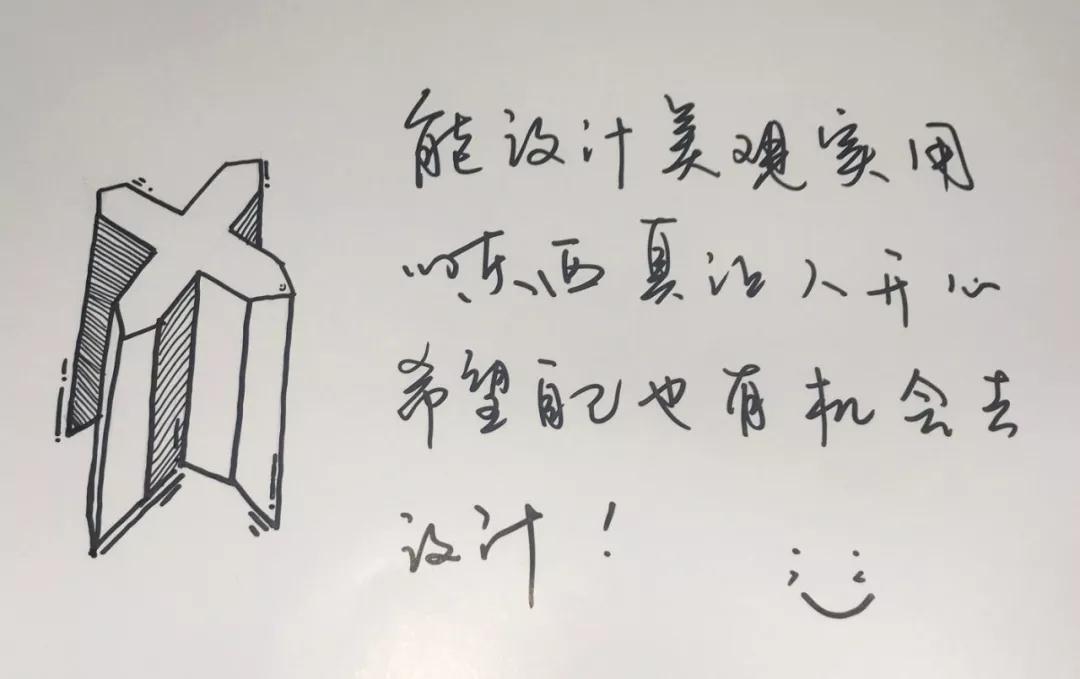 能设计美观实用
的东西真让人开心
希望自己也有机会去
设计！